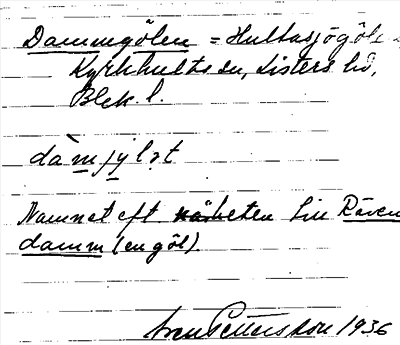 Dammgölen = Hultasjögöl
Kyrkhults sn, Listers hd,
Blek. l.
dàmjylət
Namnet eft närheten till Räven
damm (en göl).
Pettersson 1936